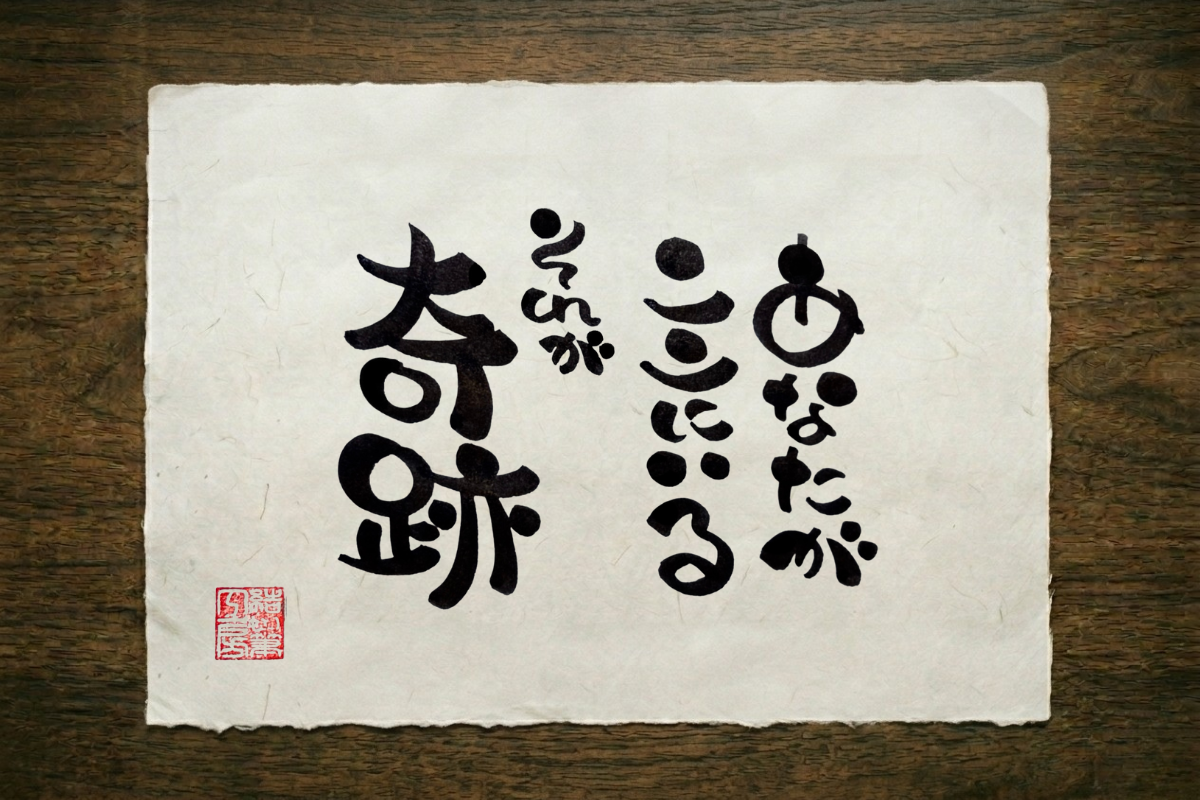 あなたが
ここにいる
それが
奇跡